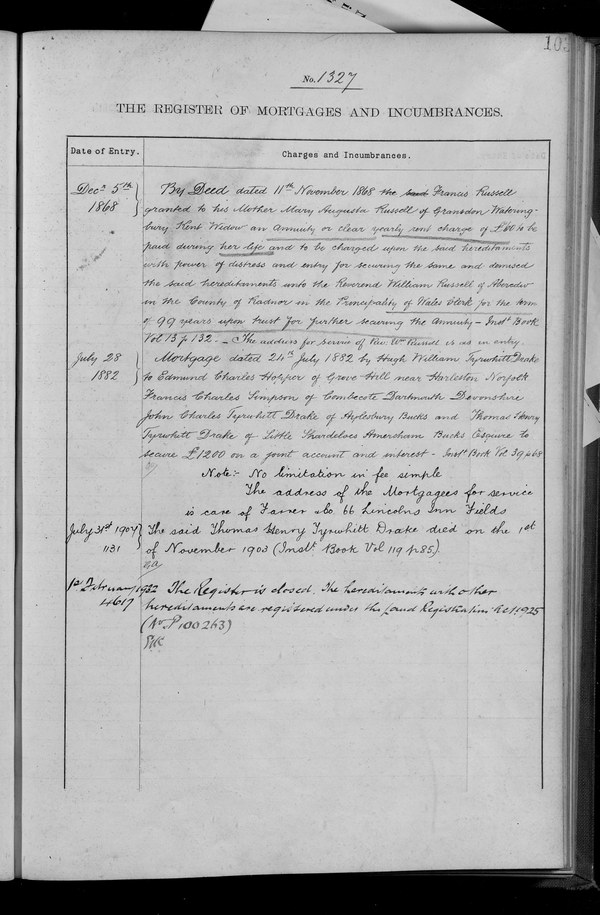 103
No. 1327
THE REGISTER OF MORTGAGES AND INCUMBRANCES.
Date of Entry.
Charges and Incumbrances.
Decr 5th
1868
By Deed dated 11th November 1868 the said Francis Russell
granted to his Mother Mary Augusta Russell of Gransdon Watering-
bury Kent Widow an Annuity or clear yearly rent charge of £60 to be
paid during her life and to be charged upon the said hereditaments
with power of distress and entry for securing the same and demised
the said hereditaments unto the Reverend William Russell of Aberedw
in the County of Radnor in the Principality of Wales Clerk for the term
of 99 years upon trust for further securing the Annuity - Inst Book
Vol 13 p 132. - The address for service of Rev. Wm Russell is as in entry.
July 28
1882
Mortgage dated 24th July 1882 by Hugh William Tyrwhitt Drake
to Edmund Charles Hopper of Grove Hill near Harleston Norfolk
Francis Charles Simpson of Combecote Dartmouth Devonshire
John Charles Tyrwhitt Drake of Aylesbury Bucks and Thomas Henry
Tyrwhitt Drake of Little Shardeloes Amersham Bucks Esquire to
secure £1200 on a joint account and interest - Inst Book Vol 39 p 68
Note:- No limitation in fee simple
The address of the Mortgagees for service
is care of Farrer & Co. 66 Lincolns Inn Fields
July 31st 1904
1131
The said Thomas Henry Tyrwhitt Drake died on the 1st
of November 1903 (Inst. Book Vol 119 p 85).
1st February 1932
4617
The Register is closed. The hereditaments with other
hereditaments are registered under the Land Registration Act 1925
(No. P100263)